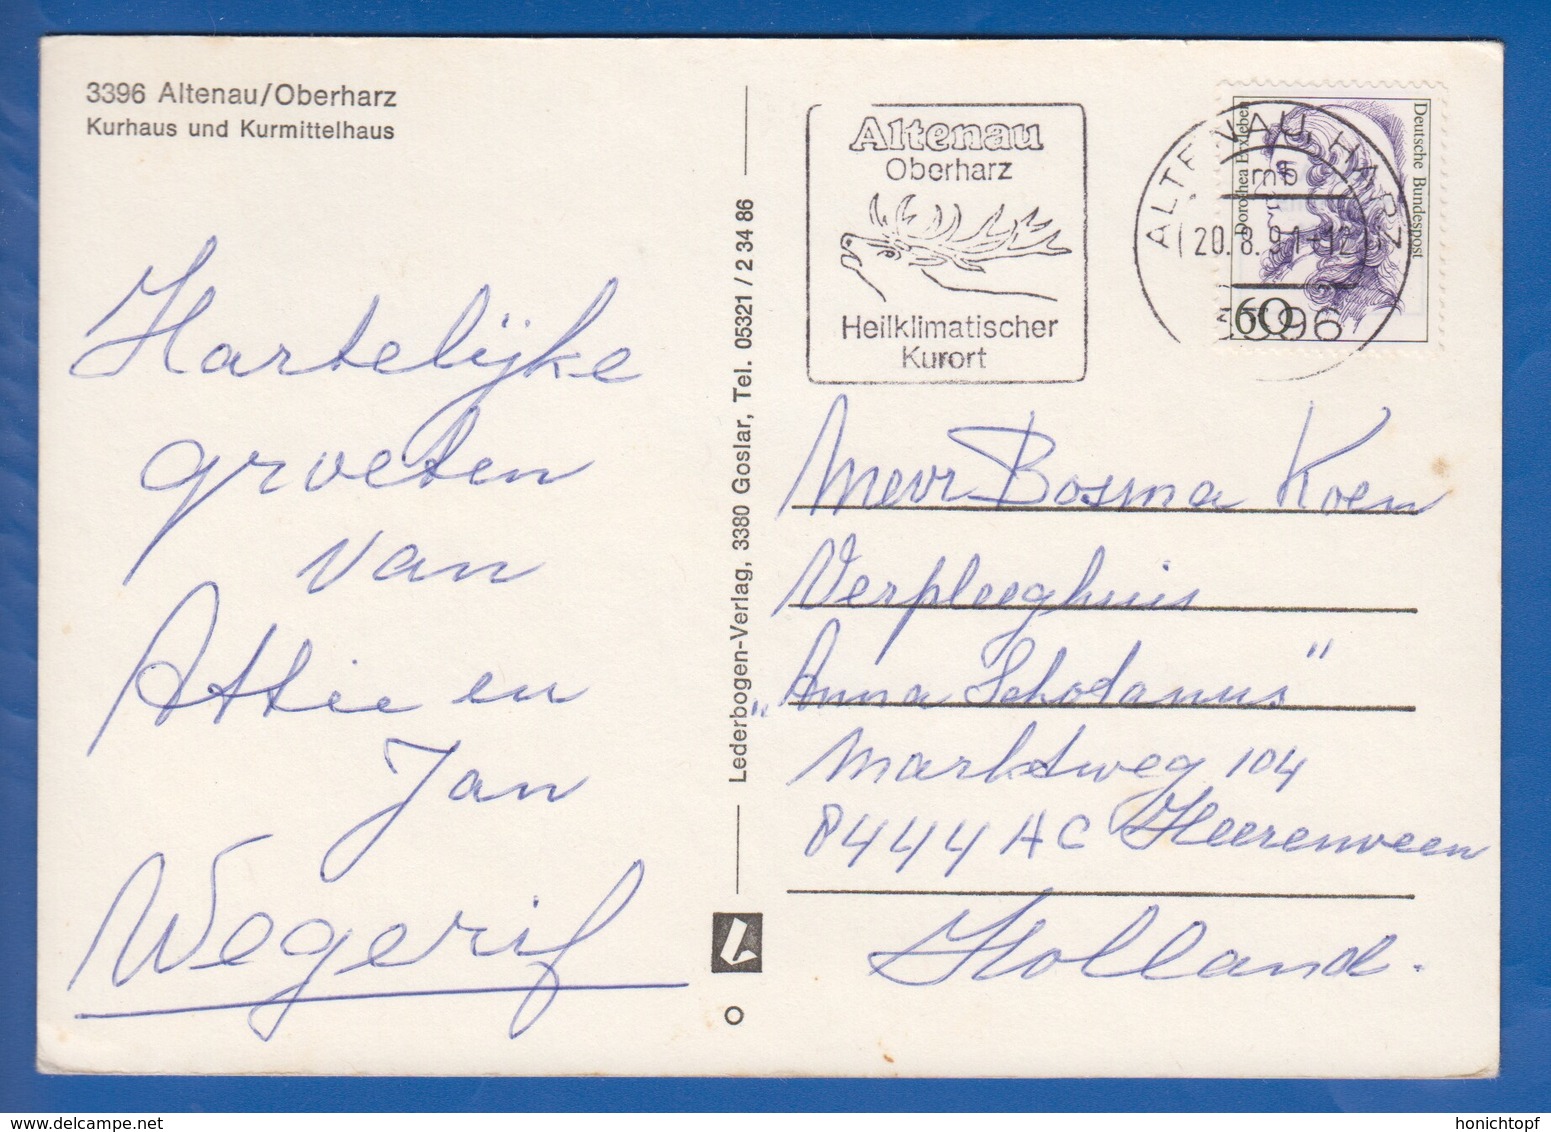 3396 Altenau/Oberharz
Kurhaus und Kurmittelhaus
Hartelijke
groeten
van
Attie en
Jan
Wegerif
Lederbogen-Verlag, 3380 Goslar, Tel. 05321 / 2 34 86
Altenau
Oberharz
Heilklimatischer
Kurort
ALTENAU, HARZ
mb
20.8.91-12
3396
Deutsche Bundespost
Dorothea Erxleben
60
Mevr Bosma Koen
Verpleeghuis
„Anna Schotanus"
Marktweg 104
8444 AC Heerenveen
Holland.
honichtopf